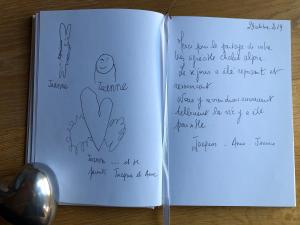 Jeanne
Jeanne
Jeanne ... et ses
parents Jacques et Anne
29 octobre 2019
Merci pour le partage de votre
très agréable chalet alpin
Le séjour a été reposant et
ressourçant
Nous y reviendrons
tellement la vie y a été
paisible
Jacques - Anne - Jeanne